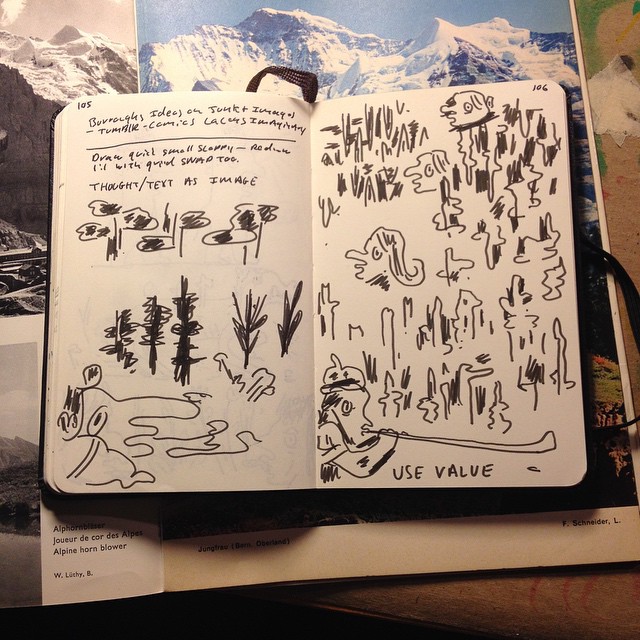 105
Burroughs Ideas on Junk + Images
- TUMBLR - Comics Lacans Imaginary
Draw quick small sloppy —
with
THOUGHT/TEXT AS IMAGE
106
USE VALUE
Alphornbläser
Joueur de cor des Alpes
Alpine horn blower
W. Lüthy, B.
Jungfrau (Bern. Oberland)
F. Schneider, L.